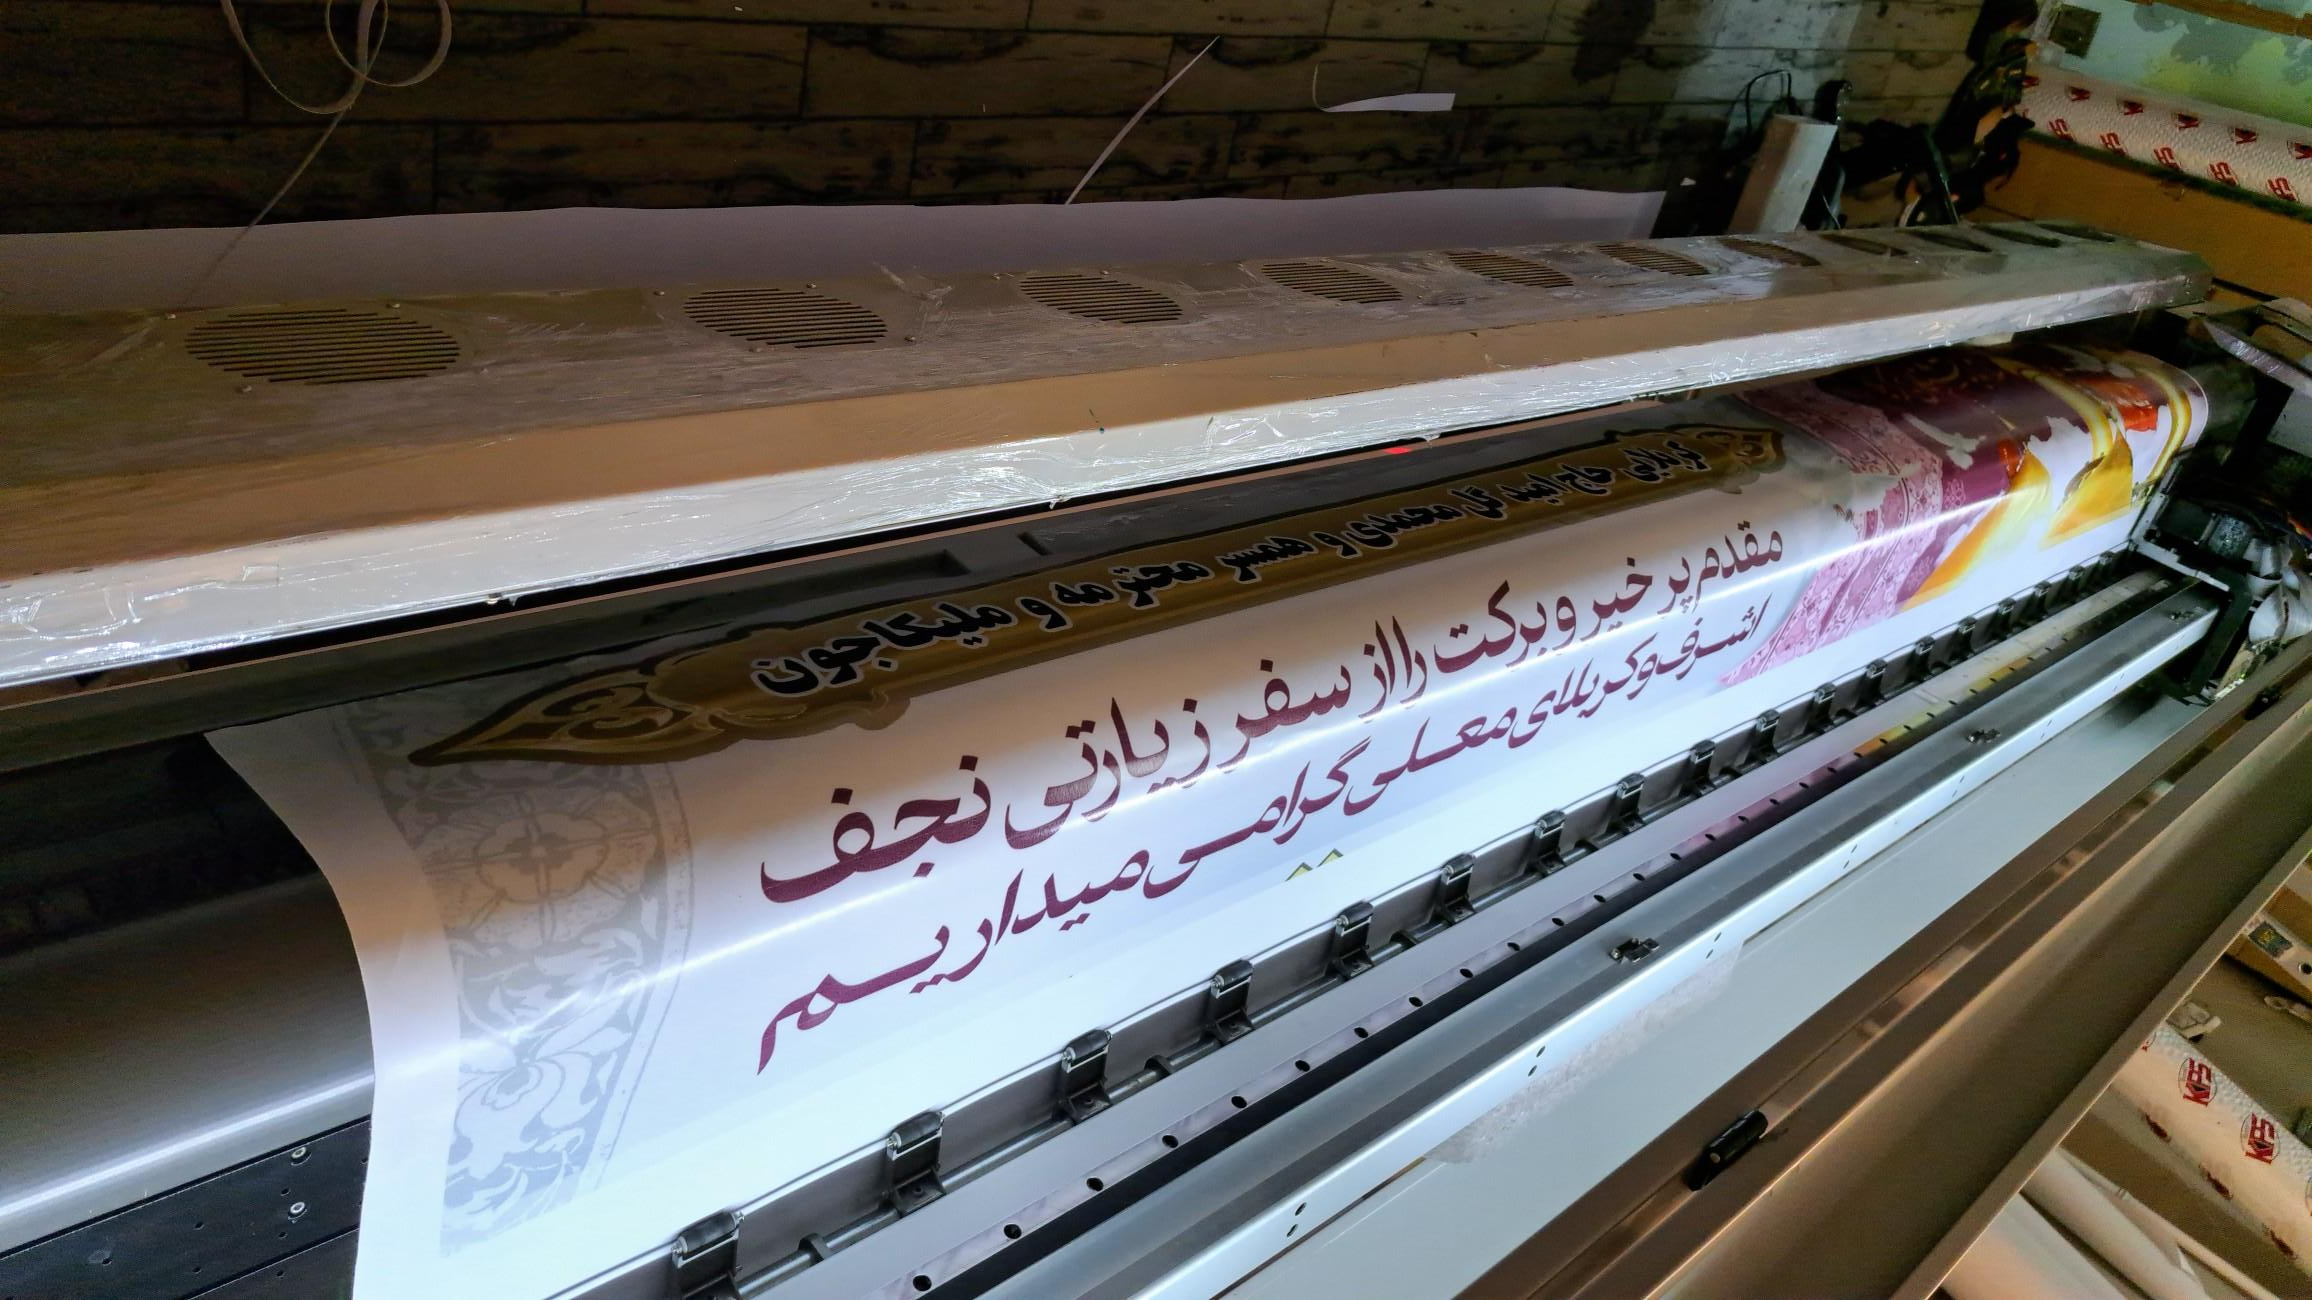 کربلایی حاج امید گل محمدی و همسر محترمه و ملیکاجون
مقدم پر خیر و برکت را از سفر زیارتی نجف
اشرف و کربلای معلی گرامی میداریم
KPS
KPS